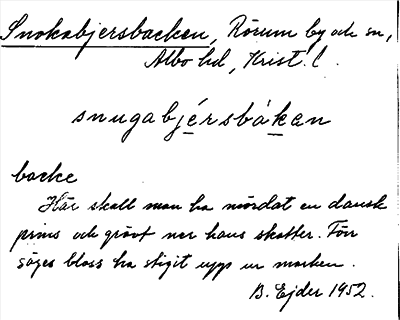 Snokabjersbacken, Rörum by och sn,
Albo hd, Krist. l.
snugabjérsbákan
backe
Här skall man ha mördat en dansk
prins och grävt ner hans skatter. Förr
säges bloss ha stigit upp ur marken.
B. Ejder 1952.